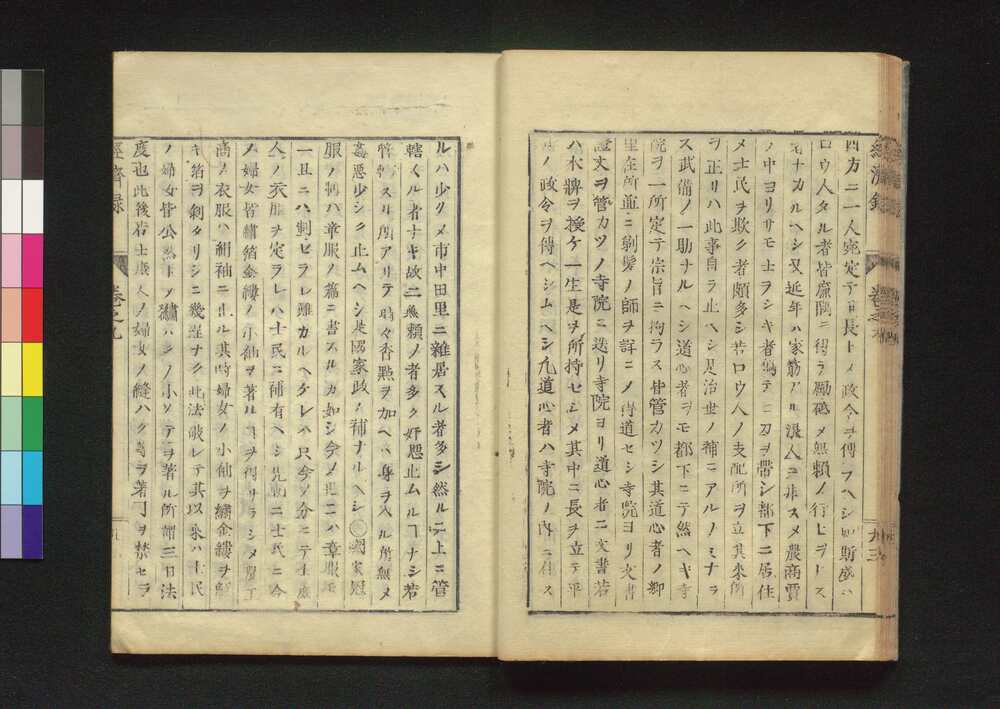 經濟録 卷之九 九三
四方ニ一人宛定テ長トメ政令ヲ傳フヘシ如斯成ハ
ロウ人タル者皆廉隅ニ得ラ勵砥メ無賴ノ行ヒヲナス
者ナカルヘシ又近年ハ家筋アル浪人ニ非スメ農商賈
ノ中ヨリサモ士ヲシキ者偽テ二刀ヲ帶シ都下ニ居住
メ士民ヲ欺ク者頗多シ若ロウ人ノ支配所ヲ立其来所
ヲ正リハ此事自ラ止ヘシ是治世ノ補ニアルノミナラ
ス武備ノ一助ナルヘシ道心者ヲモ都下ニテ然ヘキ寺
院ヲ一所定テ宗旨ニ拘ラス皆管カツシ其道心者ノ郷
里在所並ニ剃髪ノ師ヲ詳ニメ得道セシ寺院ヨリ文書
證文ヲ管カツノ寺院ニ送リ寺院ヨリ道心者ニ文書若
ハ木牌ヲ授ケ一生是ヲ所持セシメ其中ニ長ヲ立テ平
ノ政令ヲ得ヘシムヘシ凡道心者ハ寺院ノ内ニ住ス
ルハ少クメ市中田里ニ雜居スル者多シ然ルニ上ニ管
轄スル者ナキ故ニ無賴ノ者多ク奸悪止ムルヿナシ若
管轄スル所アリテ時々香點ヲ加ヘハ身ヲ入ル所無メ
姦悪少シク止ムヘシ是國家政ノ補ナルヘシ○國家冠
服ノ制ハ章服ノ篇ニ書スルカ如シ今ノ世ニハ章服モ
一旦ニハ制セラレ難カルヘケレハ只今ノ分ニテ士庶
人ノ衣服ヲ定ラレハ士民ニ補有ヘシ先動ニ士民ニ令
ノ婦女皆繍箔金縷ノ小袖ヲ著ルヿヲ得サラシメ農工
商ノ衣服ハ絹袖ニ止ル其時婦女ノ小袖ヲ繍金縷ヲ解
キ箔ヲ剥タリシニ幾程ナク此法破レテ其以来ハ士民
ノ婦女皆公然トノ繍ハクノ小ソテヲ著ル所謂三日法
度也此後皆士庶人ノ婦女ノ縫ハクヲ著ヿヲ禁セラ
經濟録 卷之九